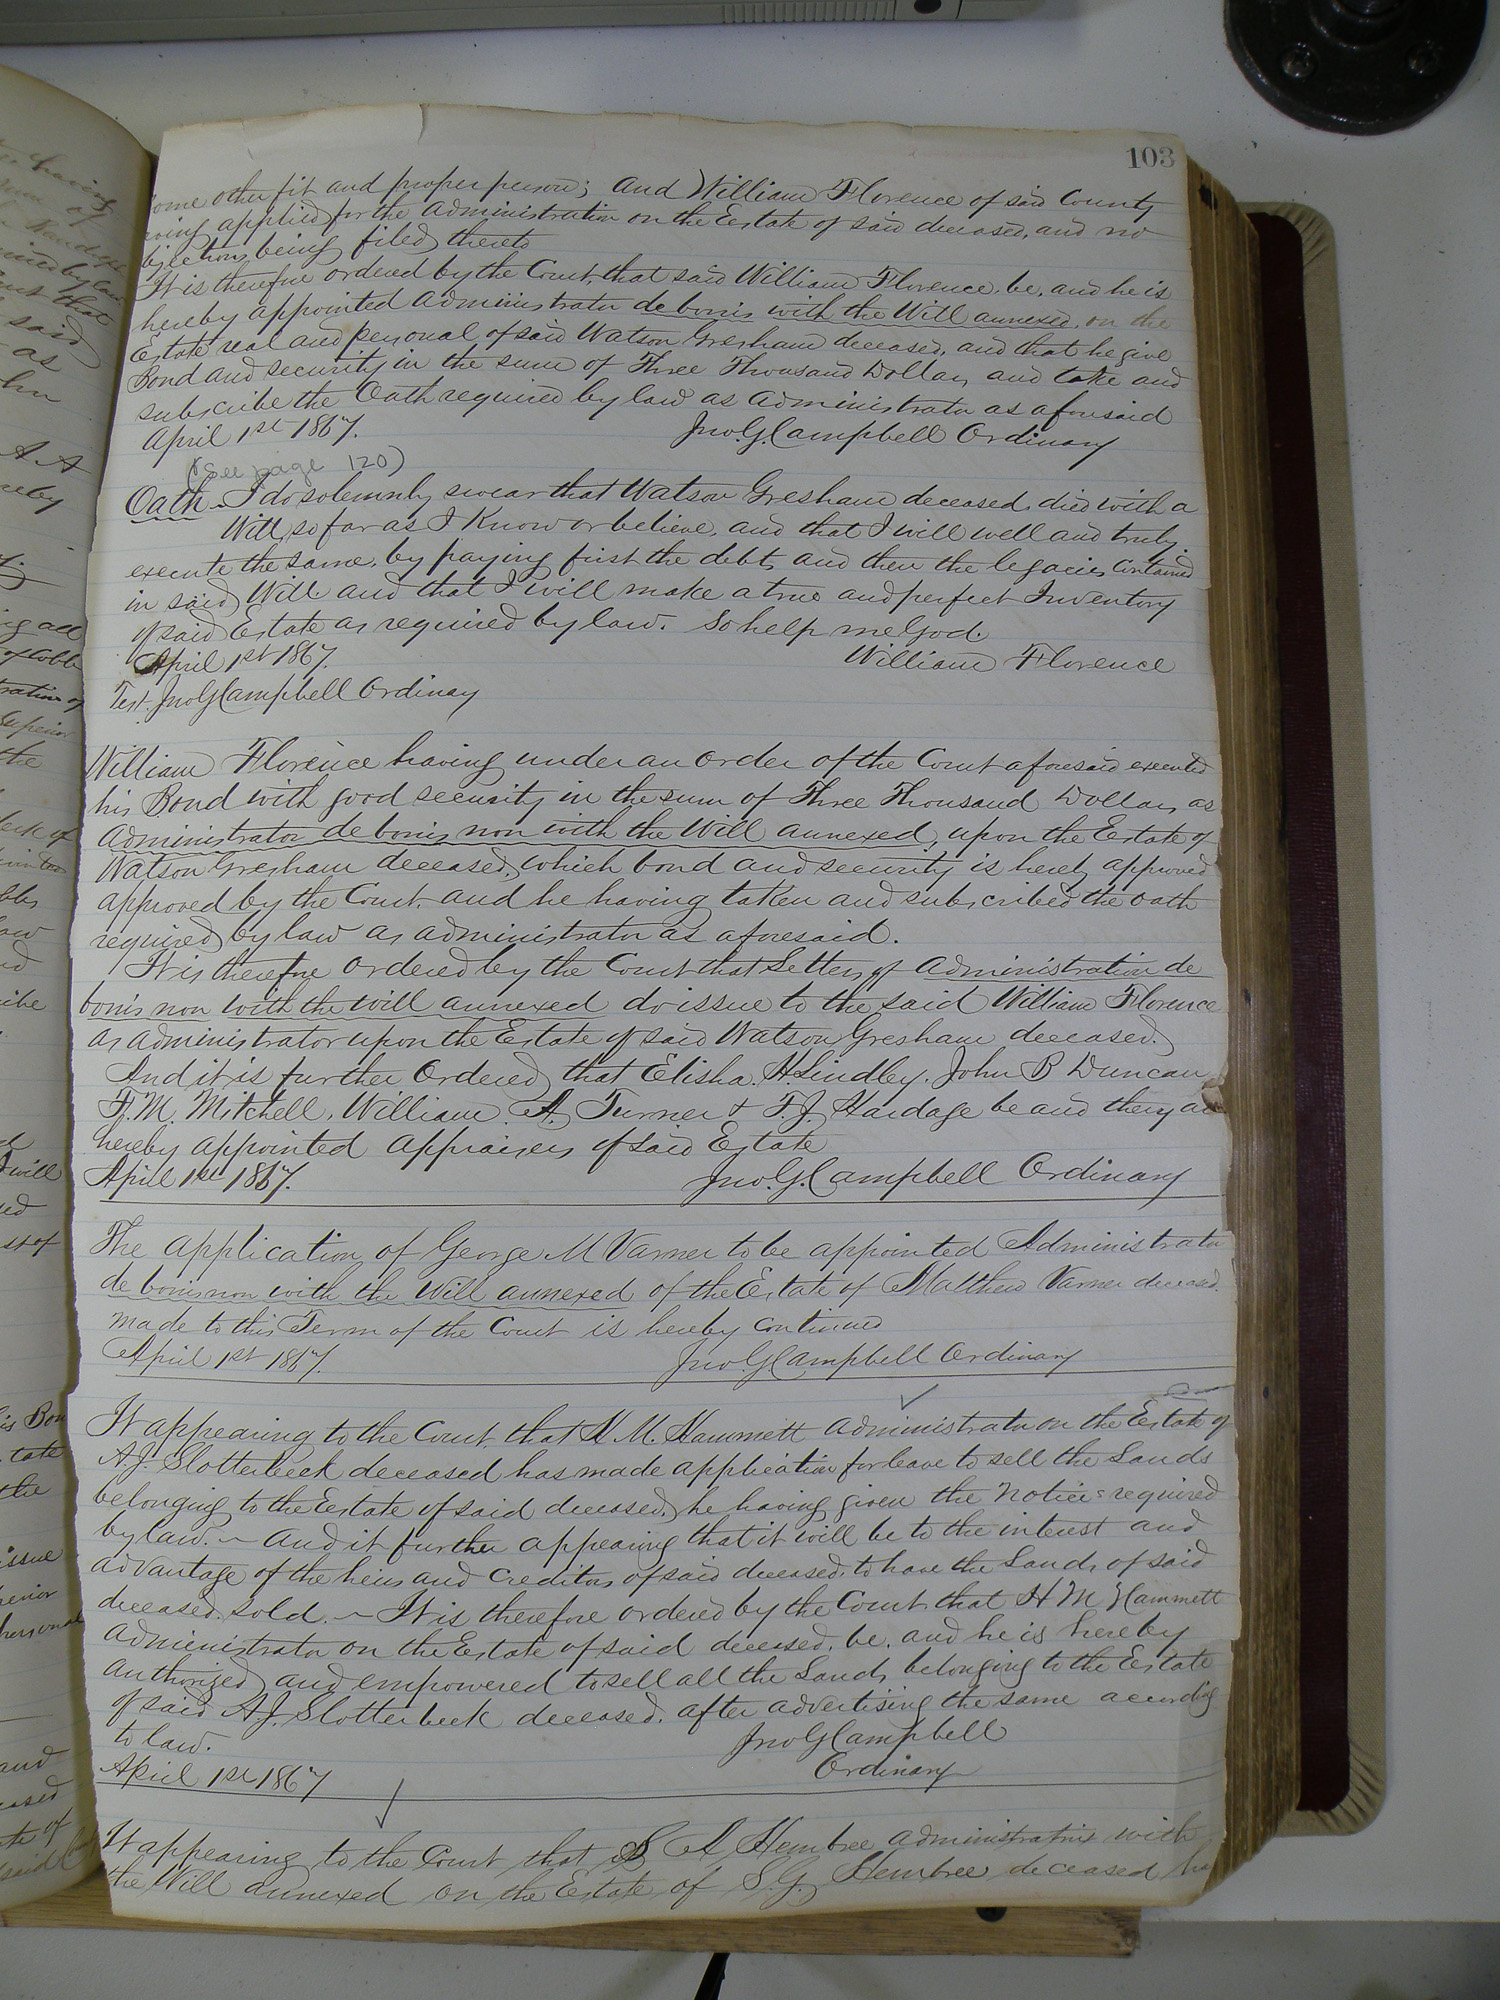 103
some other fit and proper person; and William Florence of said County
having applied for the administration on the Estate of said deceased, and no
objections being filed thereto
It is therefore ordered by the Court, that said William Florence, be, and he is
hereby appointed administrator de bonis with the Will annexed, on the
Estate real and personal, of said Watson Gresham deceased, and that he give
Bond and security in the sum of Three Thousand Dollars, and take and
subscribe the Oath required by law as administrator as aforesaid
April 1st 1867. Jno. G. Campbell Ordinary
(See page 120)
Oath ~ I do solemnly swear that Watson Gresham deceased, died with a
Will, so far as I Know or believe, and that I will well and truly
execute the same, by paying first the debts and then the legacies contained
in said Will and that I will make a true and perfect Inventory
of said Estate as required by law. So help me God.
April 1st 1867. William Florence
Test. Jno G Campbell Ordinary
William Florence having under an order of the Court aforesaid executed
his Bond with good security in the sum of Three Thousand Dollars, as
administrator de bonis non with the Will annexed, upon the Estate of
Watson Gresham deceased, which bond and security is hereby approved
approved by the Court, and he having taken and subscribed the oath
required by law as administrator as aforesaid.
It is therefore ordered by the Court that Letters of administration de
bonis non with the will annexed do issue to the said William Florence
as administrator upon the Estate of said Watson Gresham deceased.
And it is further Ordered that Elisha. H. Lindley. John B Duncan
F. M. Mitchell, William A. Turner & F. J. Hardage be and they are
hereby appointed appraisers of said Estate
April 1st 1867. Jno. G. Campbell Ordinary
The application of George M Varner to be appointed Administrator
de bonis non with the Will annexed of the Estate of Matthew Varner deceased.
made to this Term of the Court is hereby continued
April 1st 1867. Jno G Campbell Ordinary
It appearing to the Court, that H. M. Hammett administrator on the Estate of
A. J. Slotterbeek deceased has made application for leave to sell the Lands
belonging to the Estate of said deceased, he having given the notice required
by law. ~ And it further appearing that it will be to the interest and
advantage of the heirs and creditors of said deceased, to have the Lands of said
deceased, sold. ~ It is therefore ordered by the Court that H M Hammett
administrator on the Estate of said deceased, be, and he is hereby
authorized and empowered to sell all the Lands belonging to the Estate
of said A. J. Slotterbeek deceased, after advertising the same according
to law. Jno G Campbell
April 1st 1867 Ordinary
It appearing to the Court that S A Hembree administratrix with
the Will annexed on the Estate of S. G. Hembree deceased has